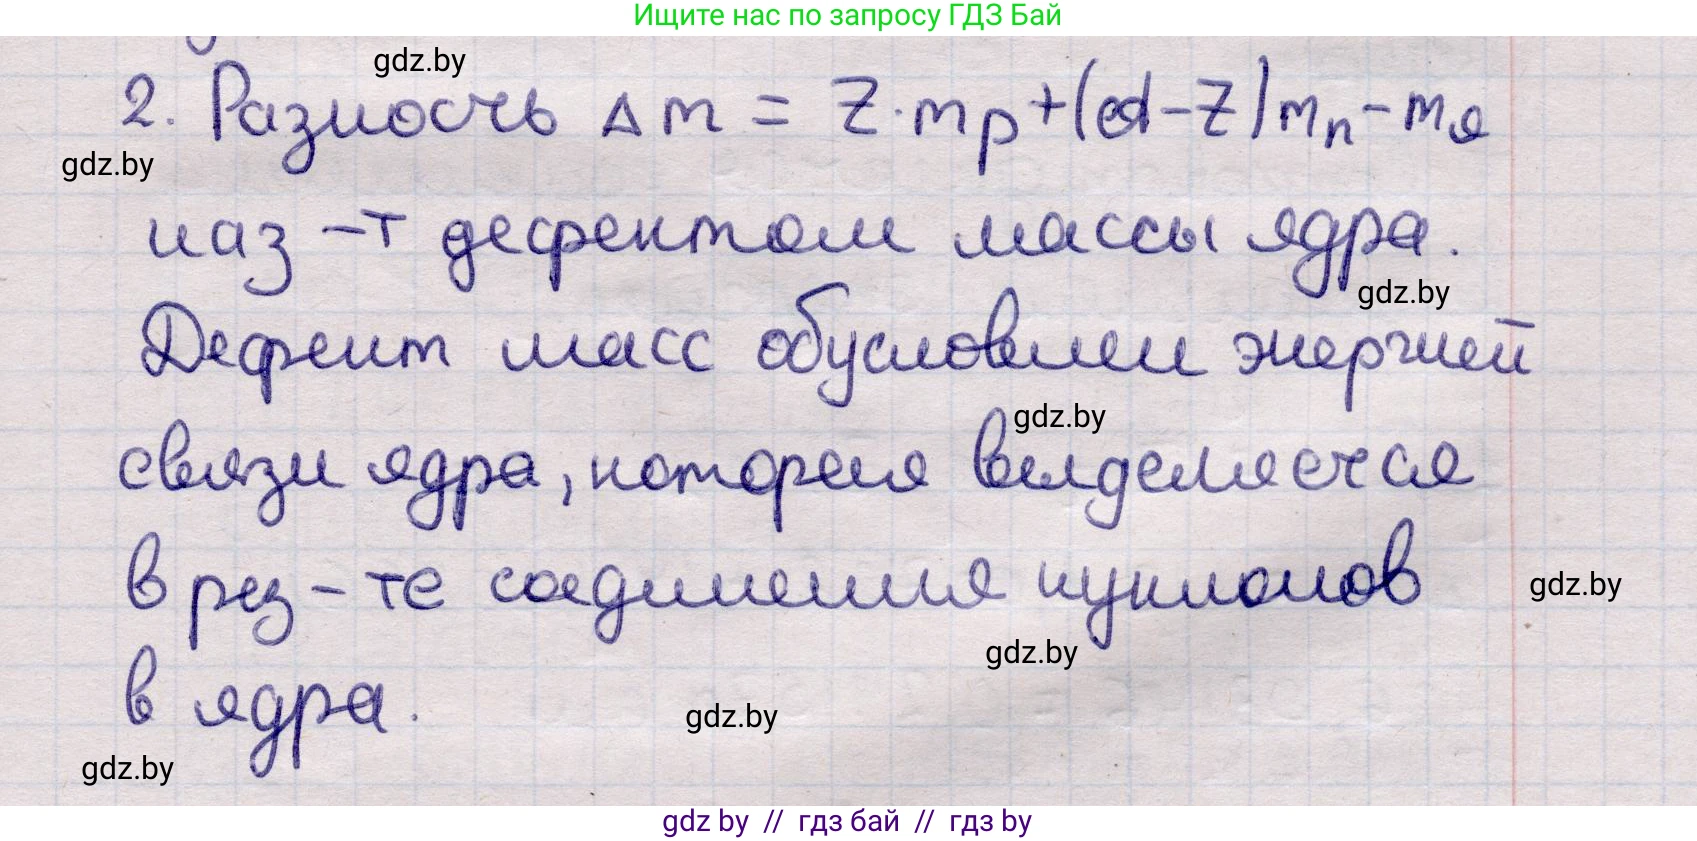 Ищите нас по запросу ГДЗ Бай
gdz.by
2. Разность Δm = Z·mp+(A-Z)mn-mя
gdz.by
наз-т дефектом массы ядра.
gdz.by
Дефект масс обусловлен энергией
gdz.by
связи ядра, которая выделяется
в рез-те соединения нуклонов
gdz.by
gdz.by
в ядра.
gdz.by
gdz.by
gdz by // гдз бай // гдз by